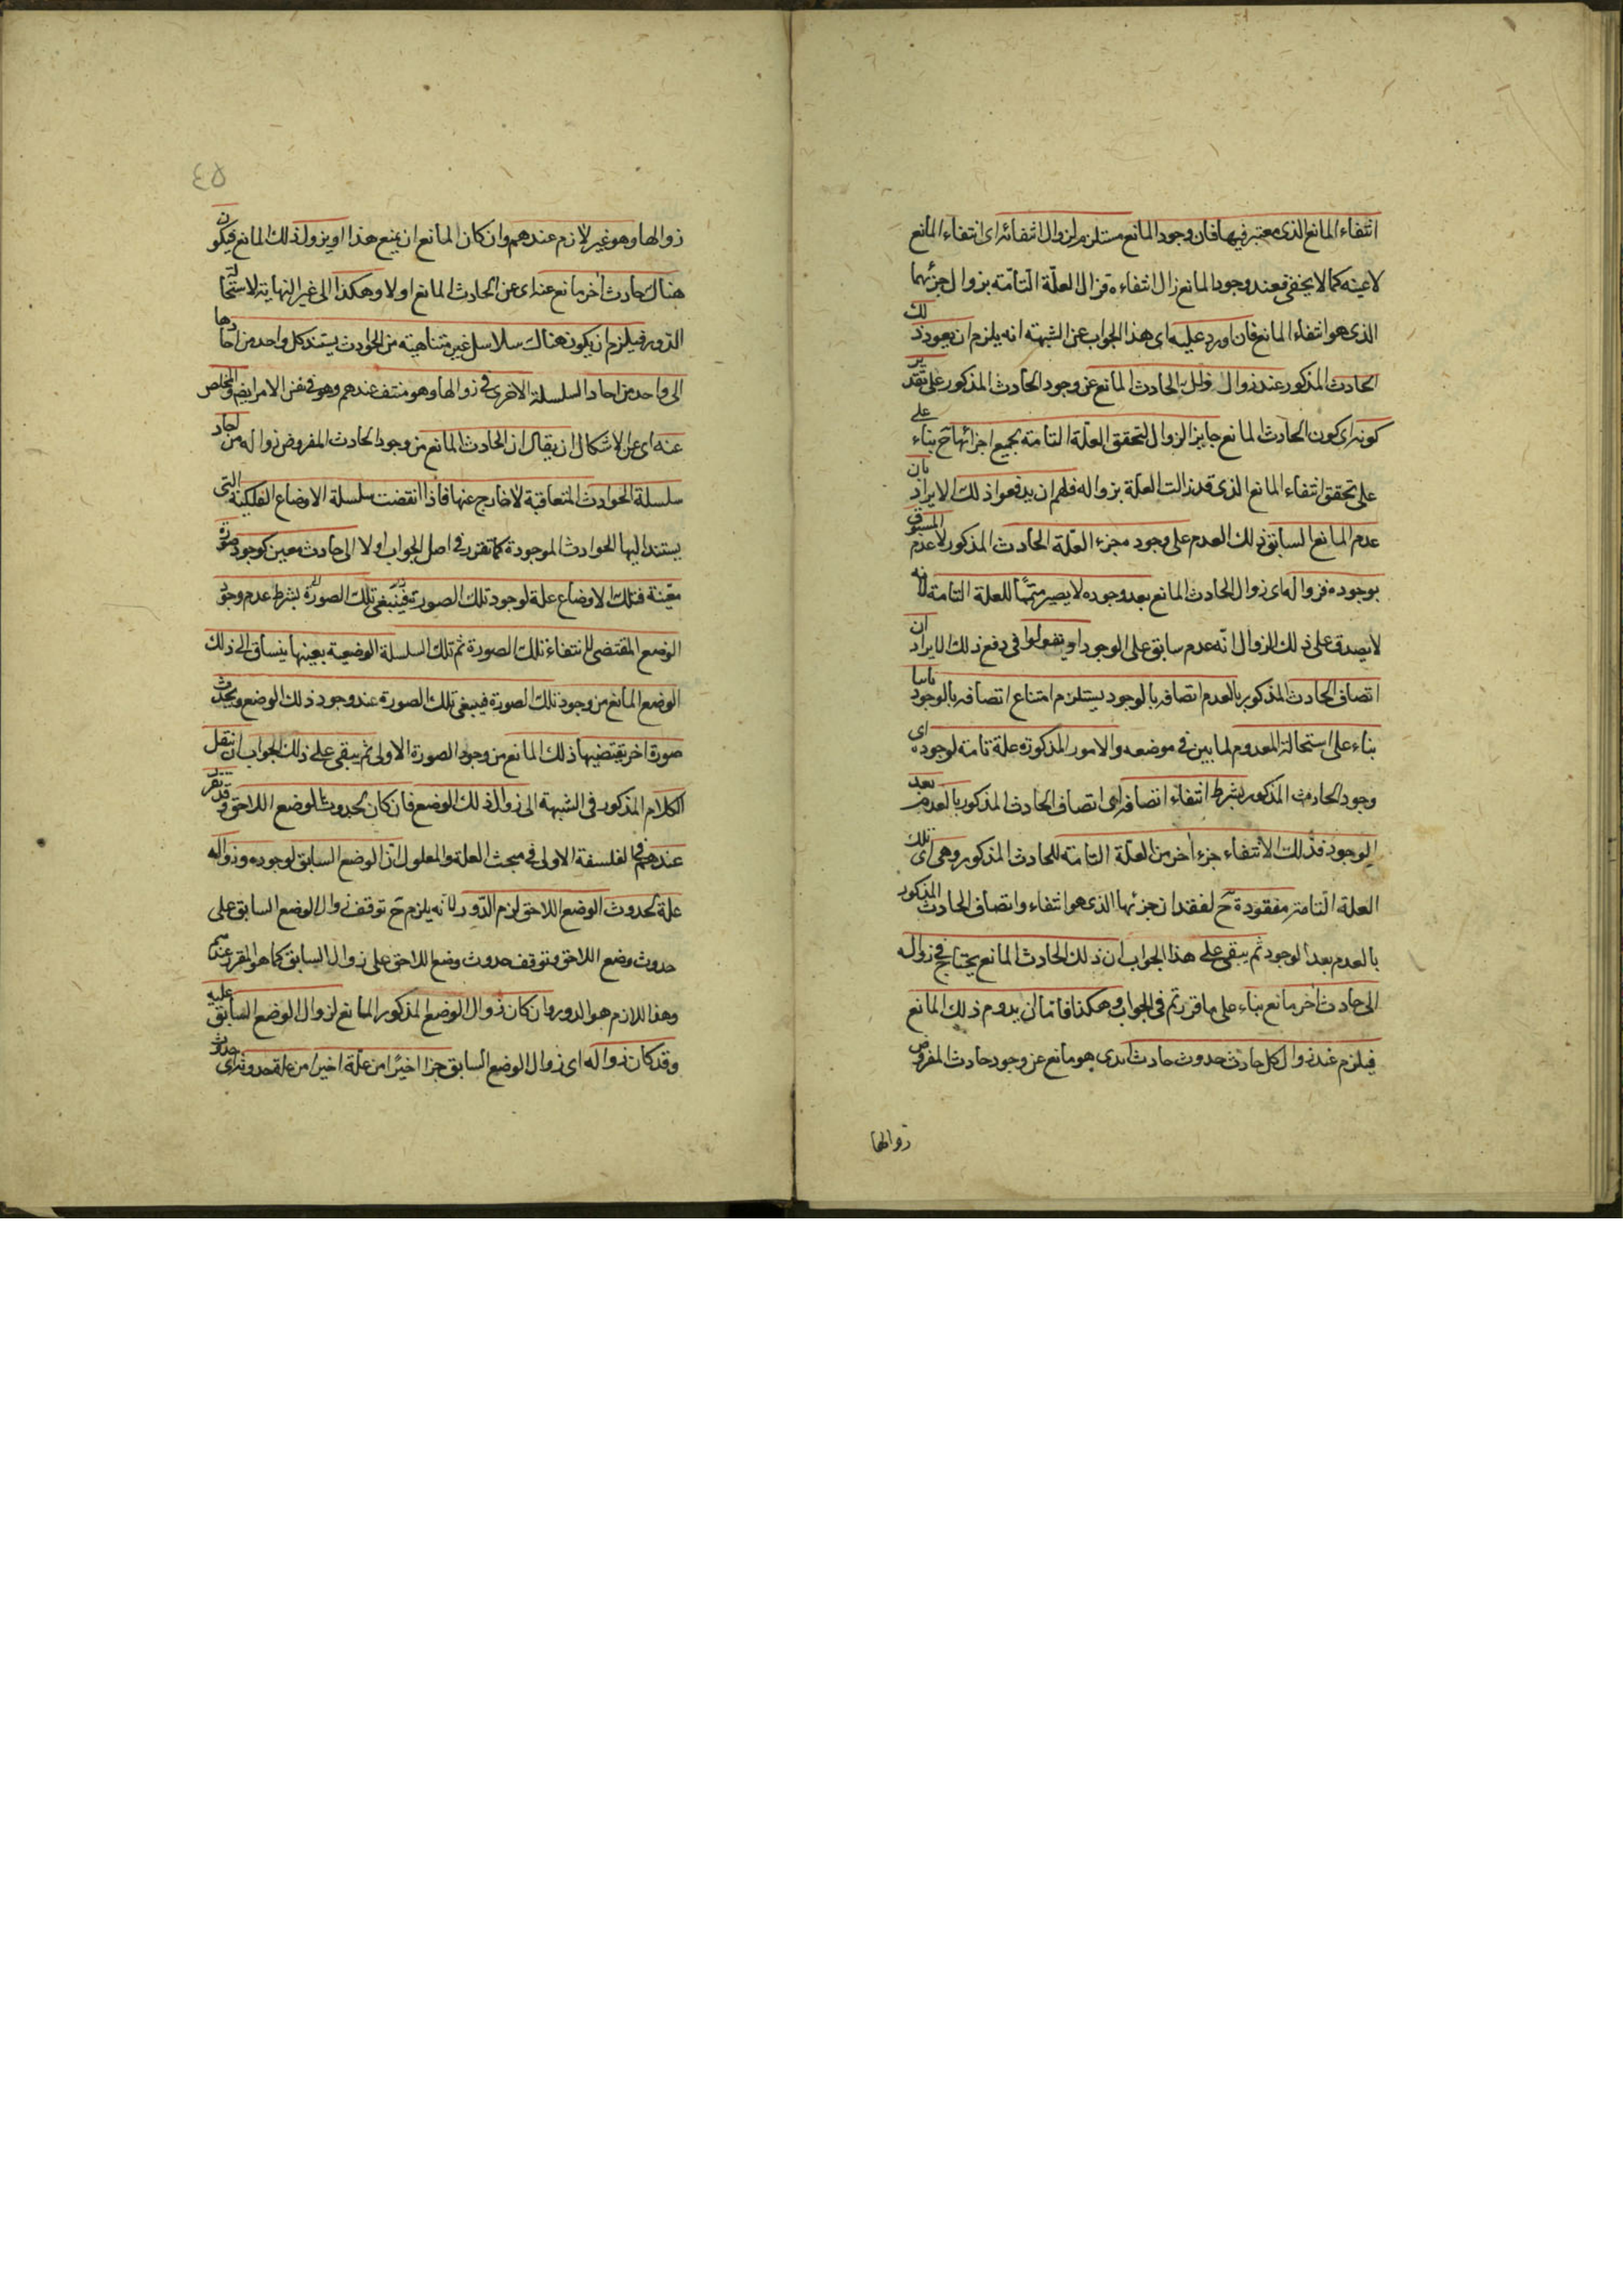 انتفاء المانع الذى معتبر فيها فان وجود المانع مستلزم لزوال انتفائه اى انتفاء المانع
لاعينه كما لا يخفى فعند وجود المانع زال انتفاءه فزال العلّة التامّة بزوال جزئها
الذى هو انتفاء المانع فان اورد عليه اى هذا الجواب عن الشبهة انه يلزم ان يعود ذلك
الحادث المذكور عند زوال ذلك الحادث المانع عن وجود الحادث المذكور على تقدير
كونه اى كون الحادث المانع جايز الزوال لتحقق العلّة التامة بجميع اجزائها ح بناء على
على تحقق انتفاء المانع الذى قد زالت العلة بزواله فلهم ان يدفعوا ذلك الايراد بان
عدم المانع السابق ذلك العدم على وجوده جزء العلّة الحادث المذكور لا عدم المسبوق
بوجوده فزواله اى زوال الحادث المانع بعد وجوده لا يصير متمّما للعلة التامة لانه
لا يصدق على ذلك الزوال انّه عدم سابق على الوجود او يقولوا فى دفع ذلك الايراد ان
اتصاف الحادث المذكور بالعدم اتصافه بالوجود يستلزم امتناع اتصافه بالوجود ثانيا
بناء على استحالة المعدوم لما بين فى موضعه والامور المذكورة علة تامة لوجوده اى
وجود الحادث المذكور بشرط انتفاء اتصافه اى اتصاف الحادث المذكور بالعدم بعد
الوجود فذلك الانتفاء جزء اخر من العلّة التامة للحادث المذكور وهى اى تلك
العلة التامة مفقودة ح لفقدان جزئها الذى هو انتفاء واتصاف الحادث المذكور
بالعدم بعد الوجود ثم يبقى على هذا الجواب ان ذلك الحادث المانع يحتاج فى زواله
الى حادث اخر مانع بناء على ما قررتم فى الجواب وهكذا فاما ان يدوم ذلك المانع
فيلزم عند زوال كل حادث حدوث حادث ابدى هو مانع عن وجود حادث المفروض
زوالها
٤٥
زوالها وهو غير لازم عندهم وان كان المانع ان يمنع هذا او يزول ذلك المانع فيكون
هناك حادث اخر مانع عنه اى عن الحادث المانع اولا وهكذا الى غير النهاية لاستحالة
الدور فيلزم ان يكون هناك سلاسل غير متناهية من الحوادث يستند كل واحد من احادها
الى واحد من احاد السلسلة الاخرى فى زوالها وهو منتف عندهم وهو فى نفس الامر ايضا والمخلص
عنه اى عن الاشكال ان يقال ان الحادث المانع من وجود الحادث المفروض زواله من احاد
سلسلة الحوادث المتعاقبة لا خارج عنها فاذا انقضت سلسلة الاوضاع الفلكية التى
يستند اليها الحوادث الموجودة كما تقرر فى اصل الجواب اولا الى حادث معين كوجود صورة
معيّنة فتلك الاوضاع علة لوجود تلك الصورة فينبغى تلك الصورة بشرط عدم وجود
الوضع المقتضى للانتفاء تلك الصورة ثم تلك السلسلة الوضعية بعينها ينساق الى ذلك
الوضع المانع من وجود تلك الصورة فينبغى تلك الصورة عند وجود ذلك الوضع ويحدث
صورة اخر يقتضيها ذلك المانع من وجود الصورة الاولى ثم يبقى على ذلك الجواب ان ننقل
الكلام المذكور فى الشبهة الى زوال ذلك الوضع فان كان لحدوث الوضع اللاحق وقد تقرر
عندهم فى الفلسفة الاولى فى مبحث العلة والمعلول ان الوضع السابق لوجوده وزواله
علة لحدوث الوضع اللاحق لزم الدّور لانه يلزم ح توقف زوال الوضع السابق على
حدوث وضع اللاحق وتوقف حدوث وضع اللاحق على زوال السابق كما هو المقرر عندهم
وهذا اللازم هو الدور وان كان زوال الوضع المذكور المانع لزوال الوضع السابق عليه
وقد كان زواله اى زوال الوضع السابق جزا اخيرا من علة اخيرا من علة حدوثه اى حدوث